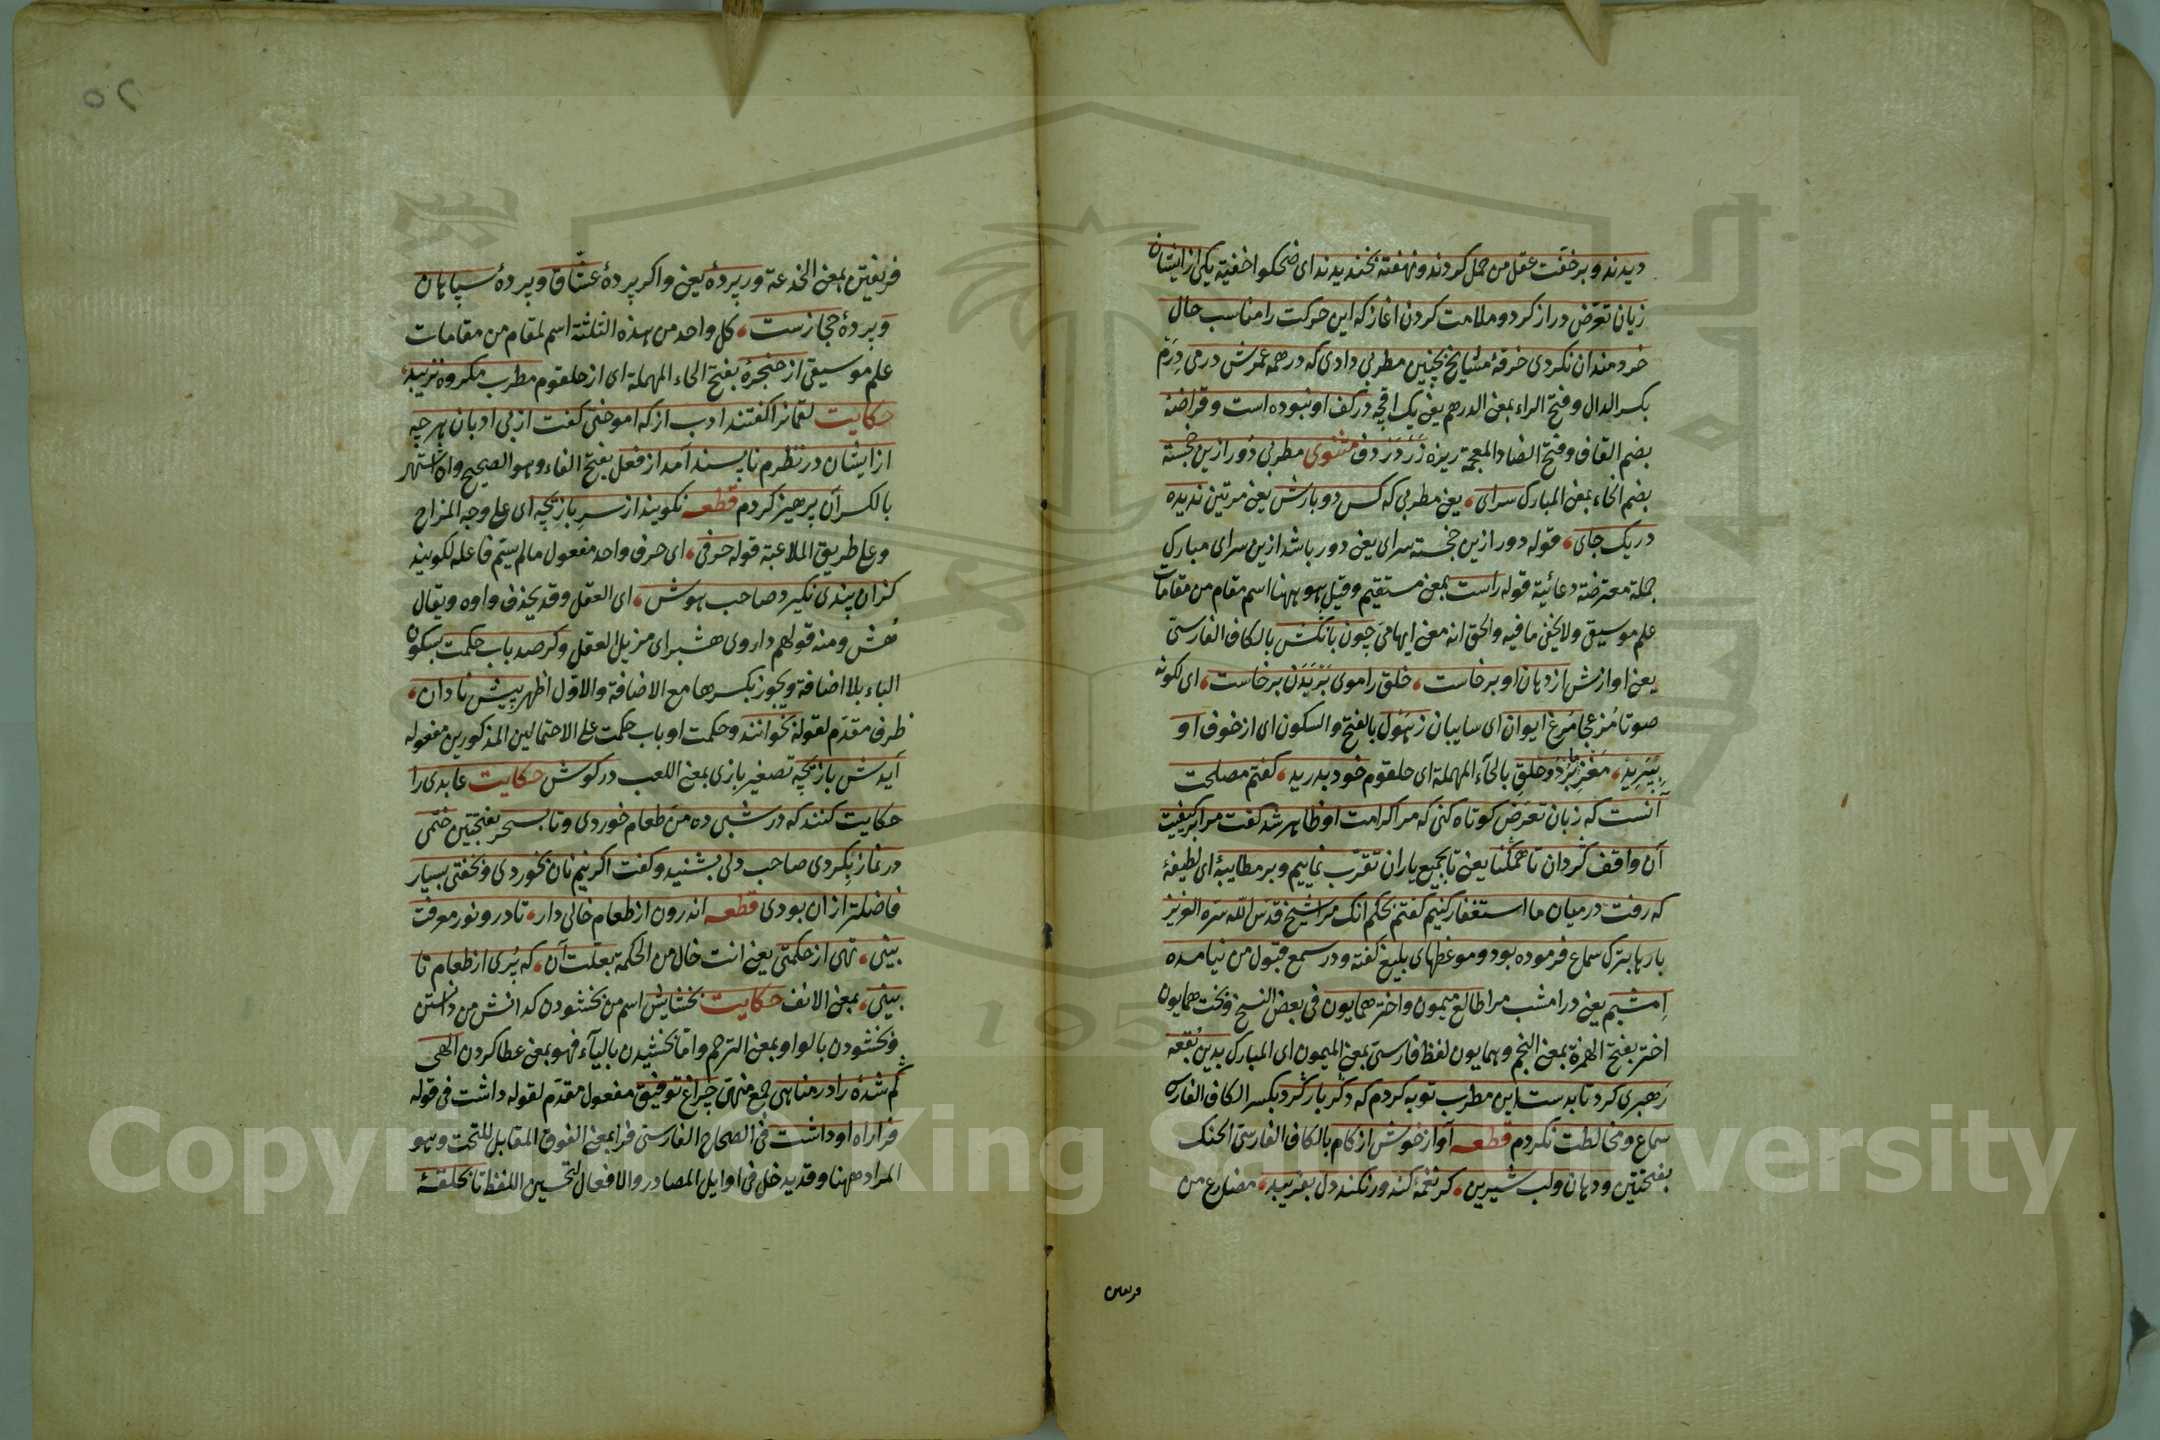 دیدند و بر خفت عقل من حمل کردند و نهفته بخندیدند ای ضحکوا خفیة یکی از ایشان
زبان تعرّض دراز کرد و ملامت کردن اغاز که این حرکت را مناسب حال
خردمندان نکردی خرقهٔ مشایخ بچنین مطربی دادی که در همه عمرش درمی دِرَم
بکسر الدال و فتح الراء بمعنی الدرهم یعنی یک اقچه در کف او نبوده است و قراضه
بضم القاف و فتح الضاد المعجمة ریزه زَر در دف مثنوی مطربی دور ازین خجسته
بضم الخاء بمعنی المبارک سرای، یعنی مطربی که کس دو بارش یعنی مرتین ندیده
در یک جای، قوله دور ازین خجسته سرای یعنی دور باشد ازین سرای مبارک
جملة معترضة دعائیة قوله راست بمعنی مستقیم و قیل هو ههنا اسم مقام من مقامات
علم موسیقی ولا یخفی ما فیه والحق انه معنی ایهامی چون بانگش بالکاف الفارسی
یعنی اوازش از دهان او برخاست، خلق را موی بر بدن برخاست، ای لکونه
صوتا مزعجا مرغ ایوان ای سایبان ز هول بالفتح والسکون ای از خوف او
بپرید، مغز ما برد و حلق بالحاء المهملة ای حلقوم خود بدرید، کفتم مصلحت
آنست که زبان تعرض کوتاه کنی که مرا کرامت او ظاهر شد کفت مرا بر کیفیت
آن واقف گردان تا همکنا یعنی تا بجمیع یاران تقرّب نماییم و بر مطایبهٔ ای لطیفهٔ
که رفت در میان ما استغفار کنیم کفتم بحکم انک مرا شیخ قدس الله سره العزیز
بارها بترک سماع فرموده بود و موعظهای بلیغ کفته و در سمع قبول من نیامده
اِمشبم یعنی در امشب مرا طالع میمون و اختر همایون فی بعض النسخ و بخت همایون
اختر بفتح الهمزة بمعنی النجم و همایون لفظ فارسی بمعنی المیمون ای المبارک بدین بُقعه
رَهبری کرد تا بدست این مطرب توبه کردم که دگر بار گرد بکسر الکاف الفارسی
سماع و مخالطت نکردم قطعه آواز خوش از کام بالکاف الفارسی الحنک
بفتحتین و دهان و لب شیرین، کر نغمه کند ور نکند دل بفریبد، مضارع من
فریفتن
فریفتن بمعنی الخدعة ور پردهٔ یعنی و اکر پردهٔ عشّاق و پردهٔ سپاهان
و پردهٔ حجازست، کل واحد من هذه الثلثة اسم لمقام من مقامات
علم موسیقی از حنجرهٔ بفتح الحاء المهملة ای از حلقوم مطرب مکروه نزیبد،
حکایت لقمانرا کفتند ادب از که اموختی کفت از بی ادبان هر چه
از ایشان در نظرم ناپسند آمد از فعل بفتح الفاء و هو الصحیح وان اشتهر
بالکسر آن پرهیز کردم قطعه نکویند از سرِ بازیچه ای علی وجه المزاح
و علی طریق الملاعبة قوله حرفی، ای حرف واحد مفعول مالم یسمّ فاعله لکویند
کزان پندی نکیرد صاحب هوش، ای العقل و قد یحذف واوه و یقال
هُش و منه قولهم داروی هشبر ای مزیل العقل و کر صد باب حکمت بسکون
الباء بلا اضافة و یجوز بکسرها مع الاضافة والاوّل اظهر پیش نادان،
ظرف مقدّم لقوله بخوانند و حکمت او باب حکمت علی الاحتمالین المذکورین مفعوله
آیدش بازیچه تصغیر بازی بمعنی اللعب در کوش حکایت عابدی را
حکایت کنند که در شبی ده من طعام خوردی و تا بسحر بفتحتین ختمی
در نماز بکردی صاحب دلی بشنید و کفت اکر نیم نان بخوردی و بخفتی بسیار
فاضلتر ازان بودی قطعه اندرون از طعام خالی دار، تا درو نور معرفت
بینی، تهی از حکمتی یعنی انت خال من الحکمة بعلّت آن، که پُری از طعام تا
بینی، بمعنی الانف حکایت بخشایش اسم من بخشودن کدانش من دانستن
و بخشودن بالواو بمعنی الترحم و اما بخشیدن بالیاء فهو بمعنی عطا کردن الهی
کم شدهٔ را در مناهی جمع منهی چراغ توفیق مفعول مقدّم لقوله داشت فی قوله
فرا راه او داشت فی الصحاح الفارسی فرا بمعنی الفوق المقابل للتحت و هو
المراد ههنا و قد یدخل فی اوایل المصادر والافعال لتحسین اللفظ تا بحلقهٔ
Copyright © King Saud University
195